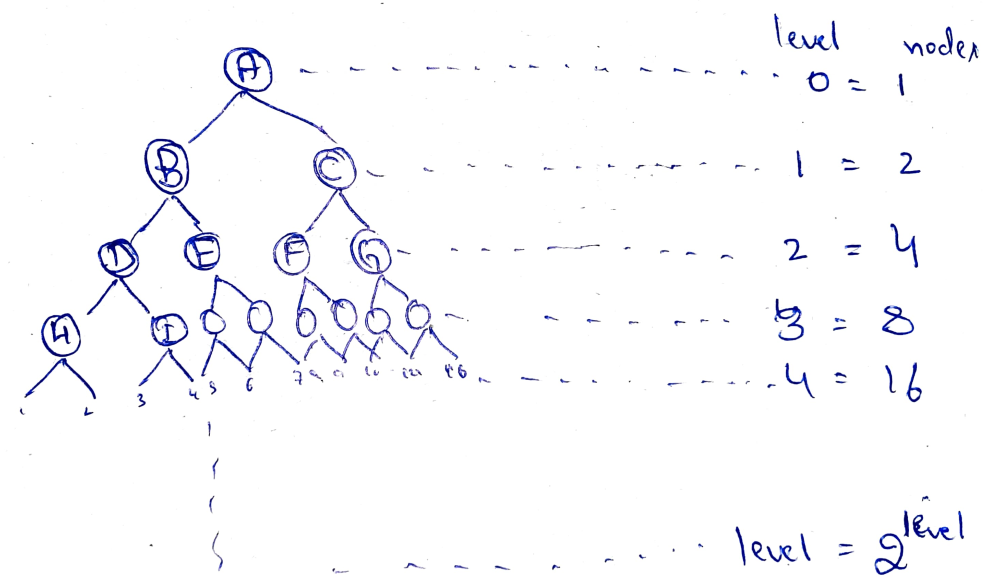 level nodes
A 0 = 1
B C 1 = 2
D E F G 2 = 4
H I 3 = 8
1 2 3 4 5 6 7 4 = 16
level = 2^level